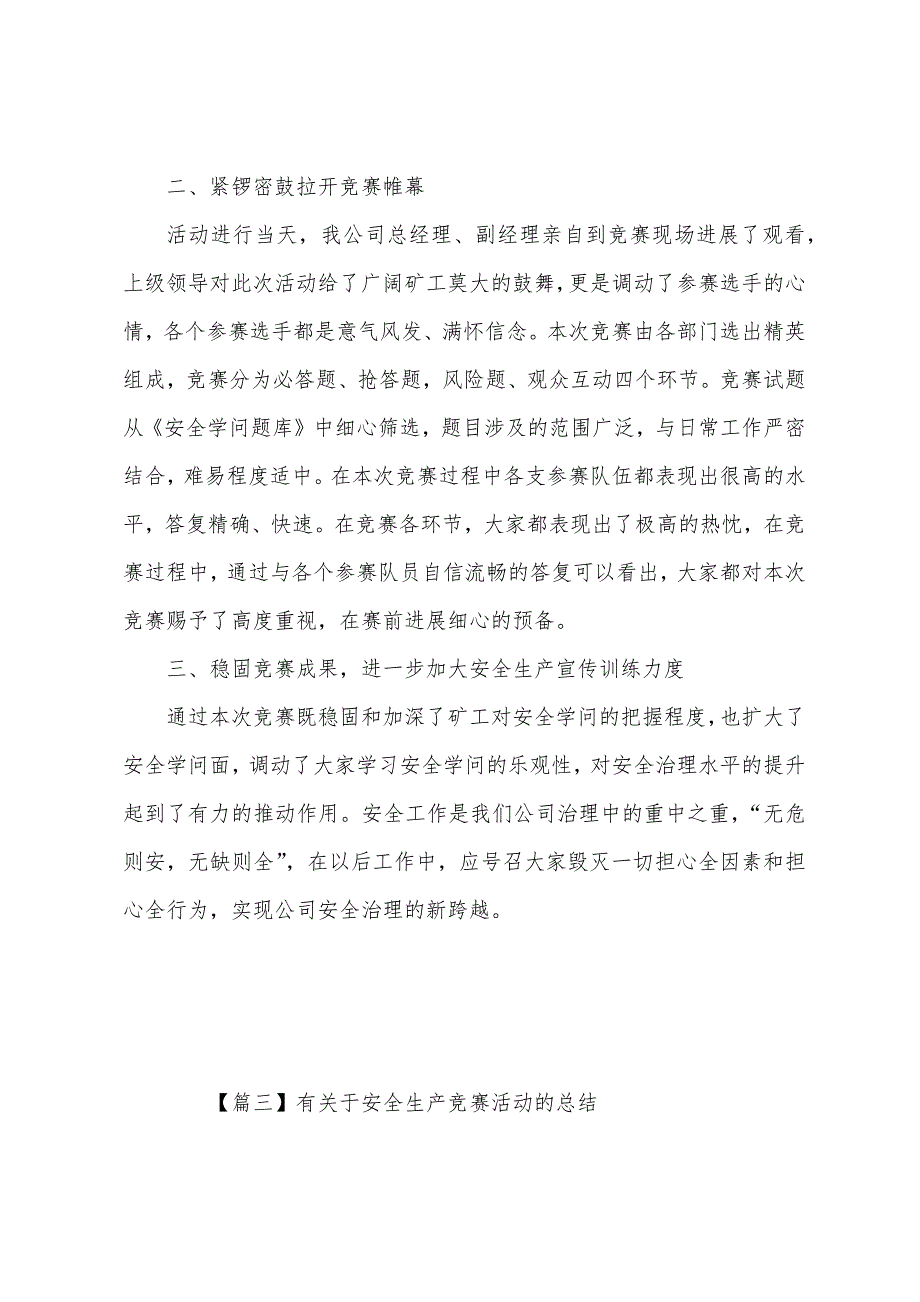 二、紧锣密鼓拉开竞赛帷幕
活动进行当天，我公司总经理、副经理亲自到竞赛现场进展了观看，
上级领导对此次活动给了广阔矿工莫大的鼓舞，更是调动了参赛选手的心
情，各个参赛选手都是意气风发、满怀信念。本次竞赛由各部门选出精英
组成，竞赛分为必答题、抢答题，风险题、观众互动四个环节。竞赛试题
从《安全学问题库》中细心筛选，题目涉及的范围广泛，与日常工作严密
结合，难易程度适中。在本次竞赛过程中各支参赛队伍都表现出很高的水
平，答复精确、快速。在竞赛各环节，大家都表现出了极高的热忱，在竞
赛过程中，通过与各个参赛队员自信流畅的答复可以看出，大家都对本次
竞赛赐予了高度重视，在赛前进展细心的预备。
三、稳固竞赛成果，进一步加大安全生产宣传训练力度
通过本次竞赛既稳固和加深了矿工对安全学问的把握程度，也扩大了
安全学问面，调动了大家学习安全学问的乐观性，对安全治理水平的提升
起到了有力的推动作用。安全工作是我们公司治理中的重中之重，“无危
则安，无缺则全”，在以后工作中，应号召大家毁灭一切担心全因素和担
心全行为，实现公司安全治理的新跨越。
【篇三】有关于安全生产竞赛活动的总结